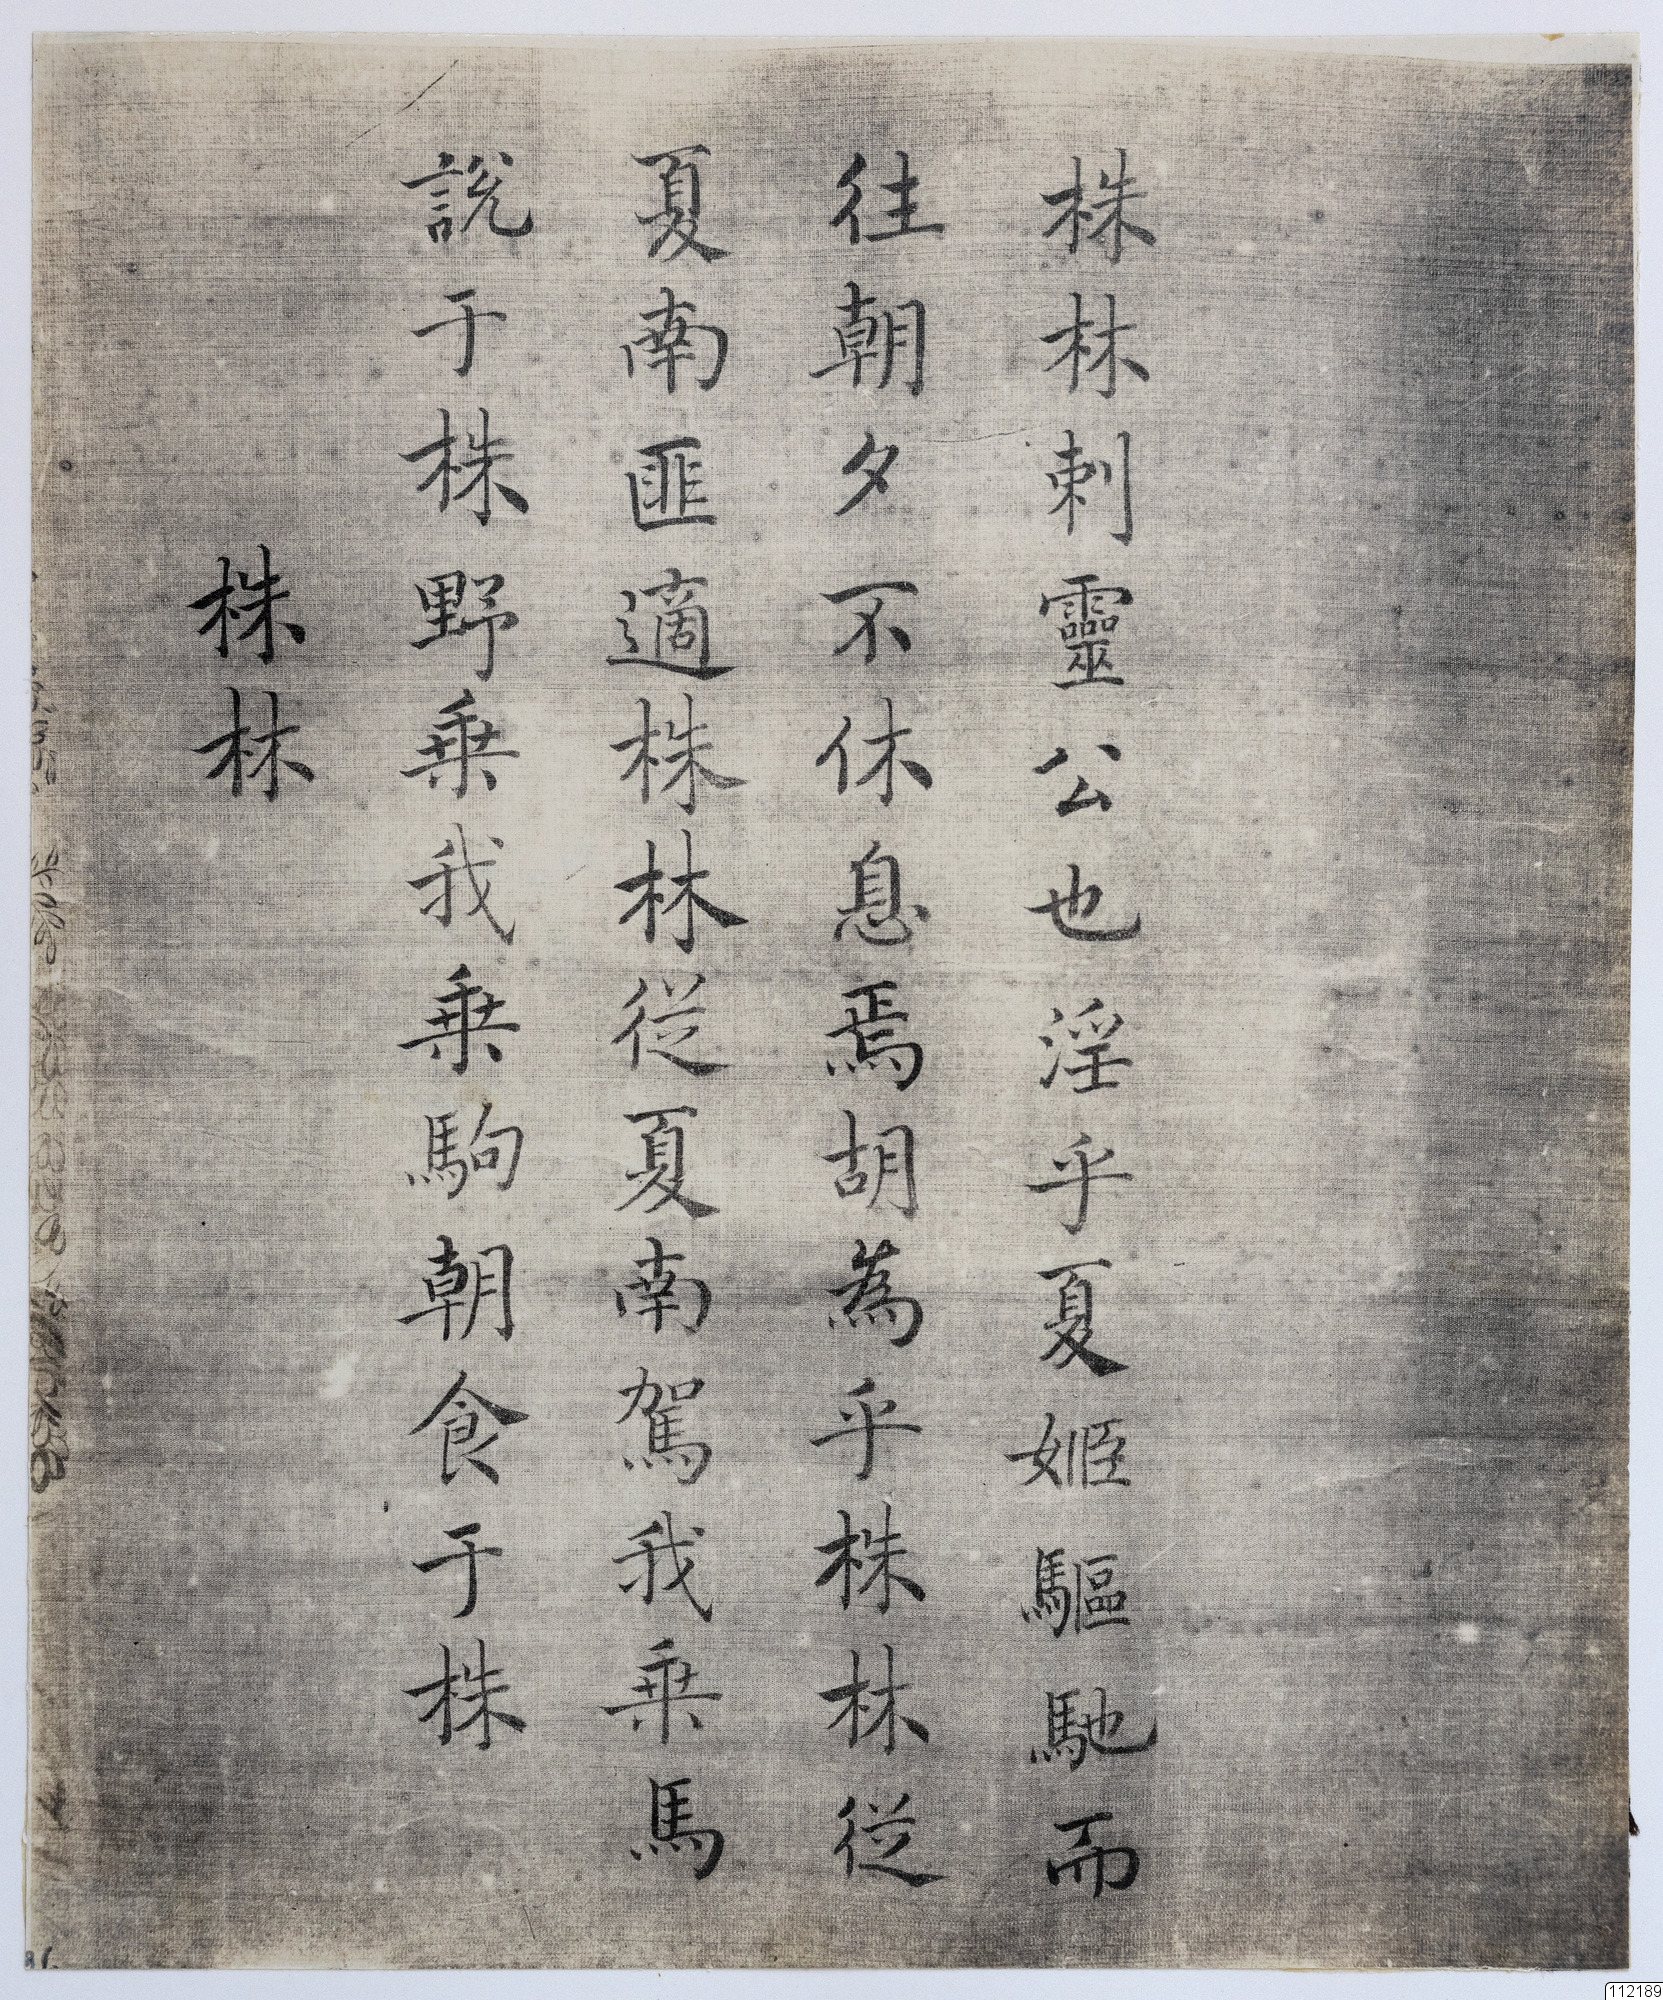 株林刺靈公也淫乎夏姬驅馳而
往朝夕不休息焉胡為乎株林従
夏南匪適株林従夏南駕我乗馬
說于株野乗我乗駒朝食于株
株林
112189